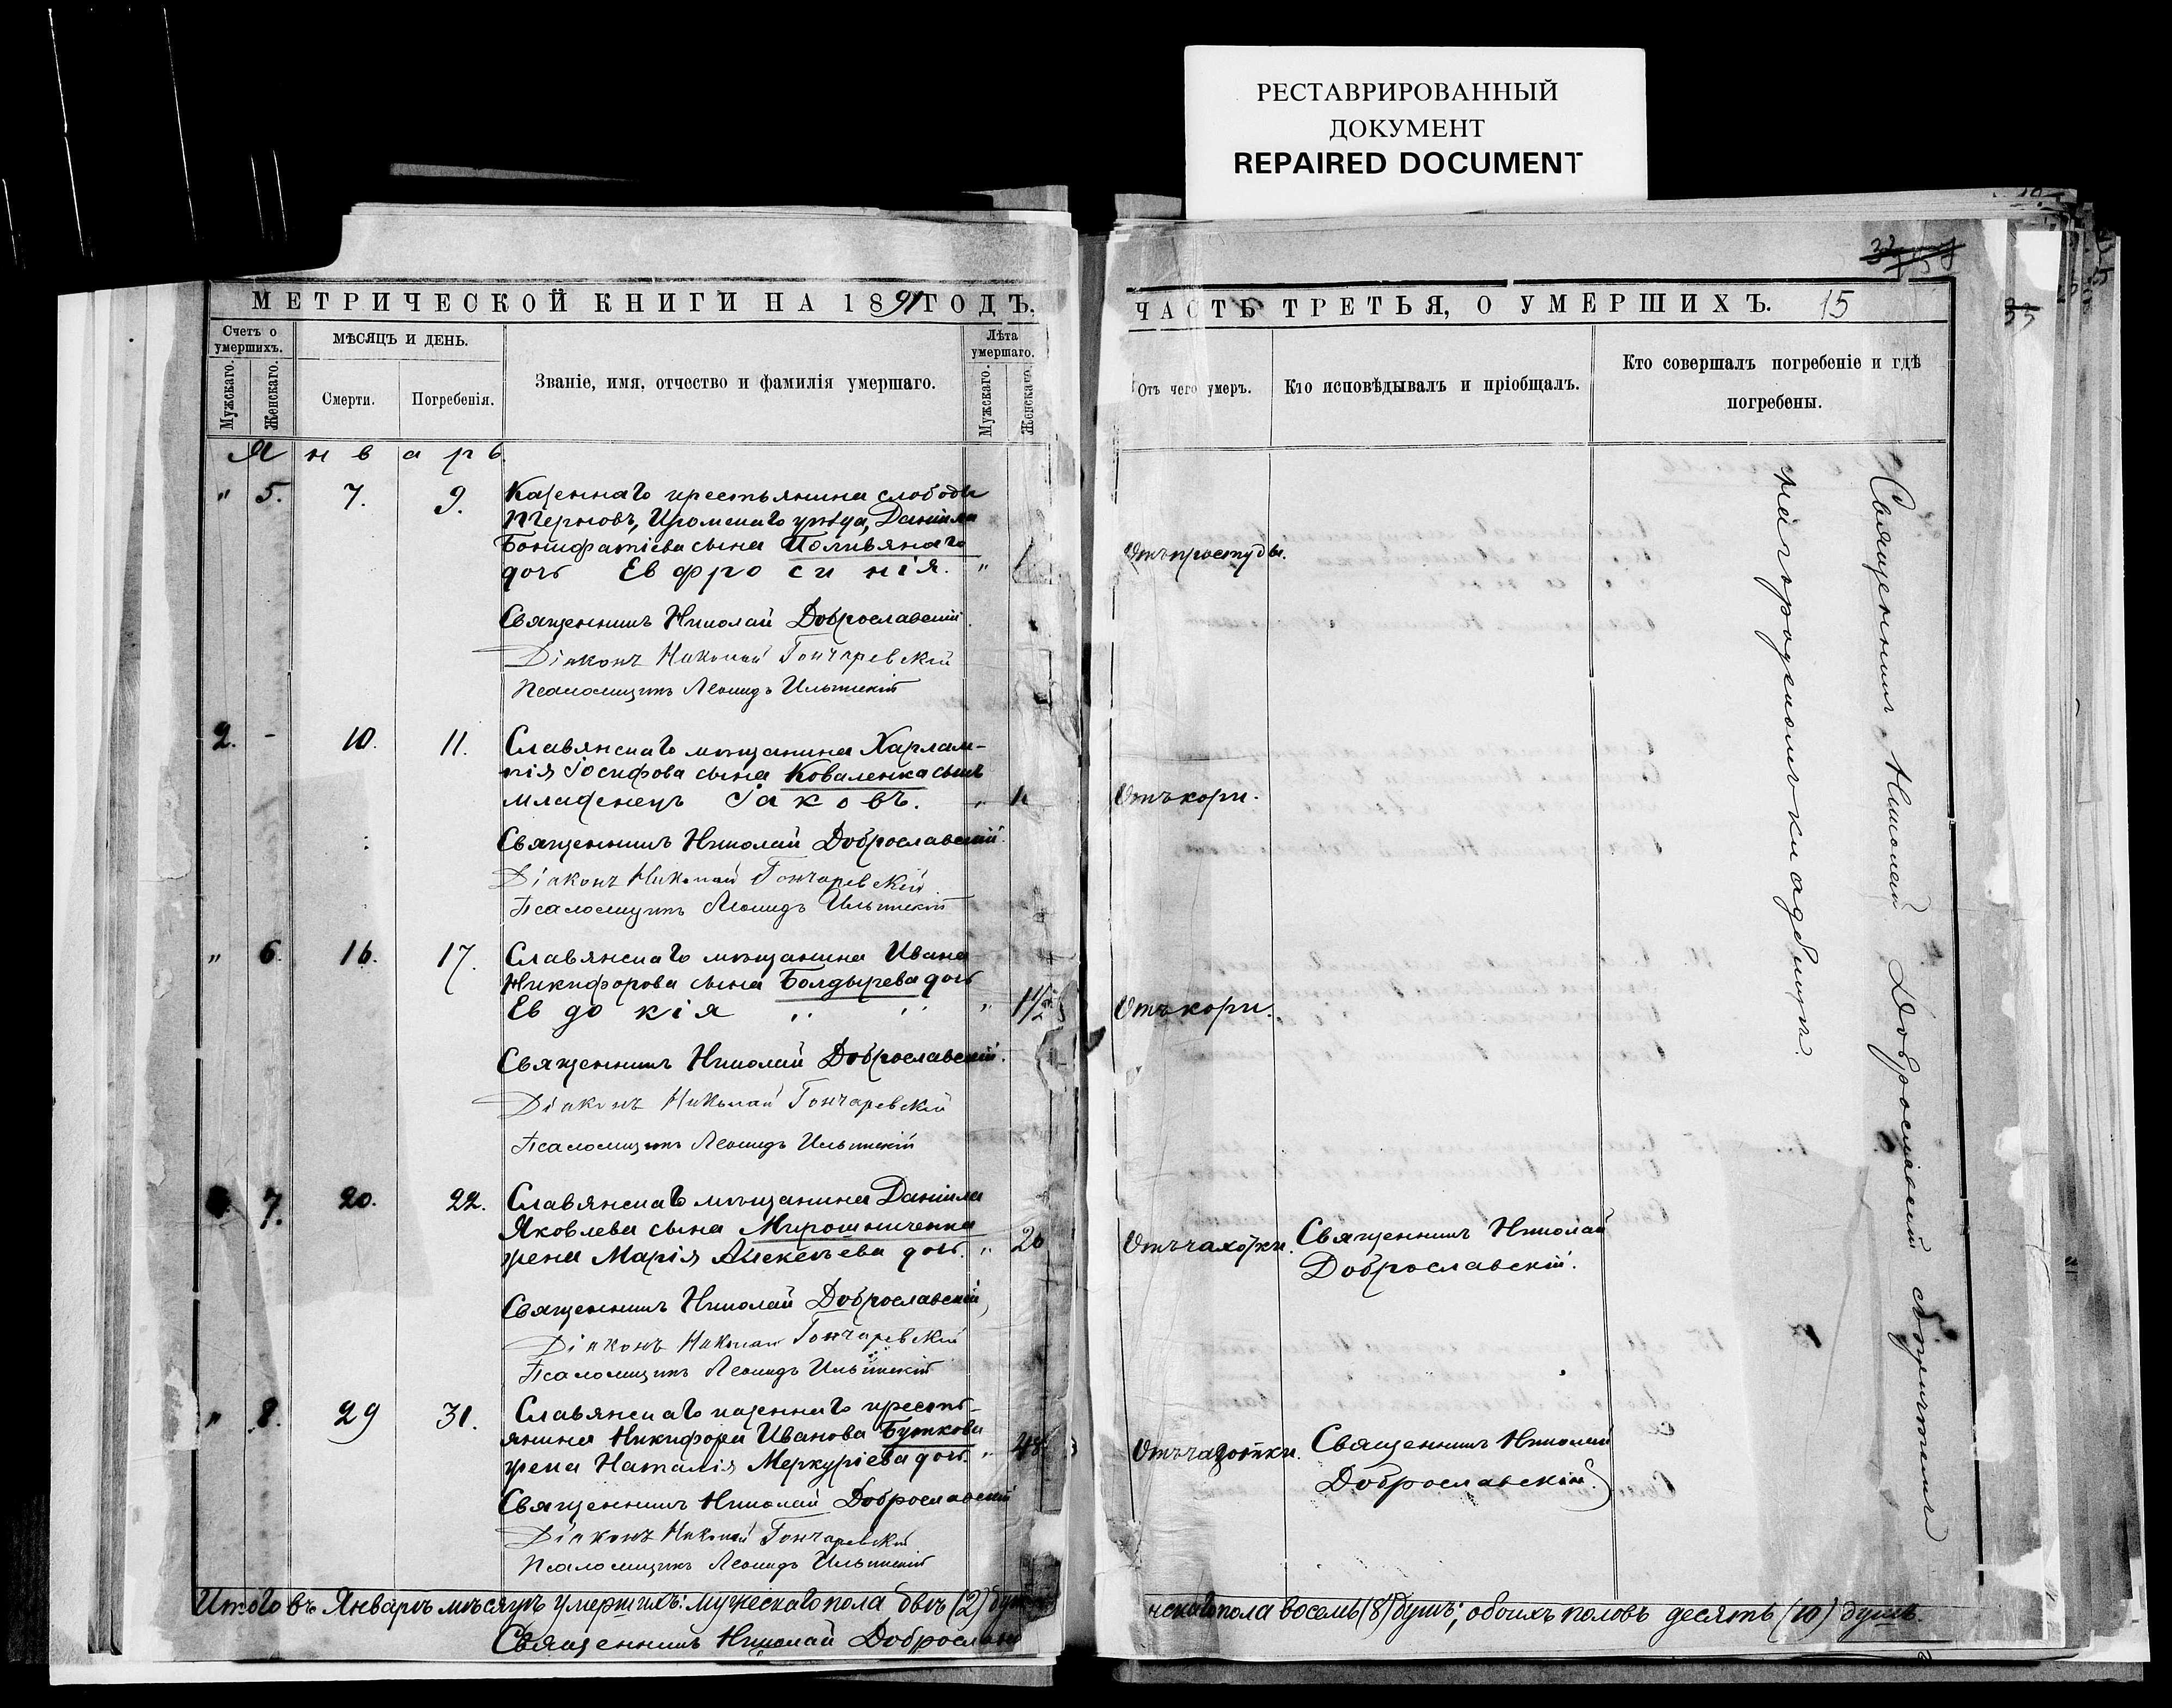 РЕСТАВРИРОВАННЫЙ
ДОКУМЕНТ
REPAIRED DOCUMENT
МЕТРИЧЕСКОЙ КНИГИ НА 1891 ГОДЪ.
Счетъ о умершихъ.
МѢСЯЦЪ И ДЕНЬ.
Званіе, имя, отчество и фамилія умершаго.
Лѣта умершаго.
Мужскаго.
Женскаго.
Смерти.
Погребенія.
Мужскаго.
Женскаго.
Январь
" 5. 7. 9. Казеннаго крестьянина слободы
Даніила
Бонифатіева сына Поливянаго
дочь Евфросинія. "
Священникъ Николай Доброславскій
Діаконъ Николай Гончаревскій
Псаломщикъ Леонидъ Ильинскій
2. - 10. 11. Славянскаго мѣщанина Харлам-
пія Іосифова сына Коваленка сынъ
младенецъ Іаковъ.
Священникъ Николай Доброславскій.
Діаконъ Николай Гончаревскій
Псаломщикъ Леонидъ Ильинскій
" 6. 16. 17. Славянскаго мѣщанина Ивана
Никифорова сына Болдырева дочь
Евдокія " 1 1/2
Священникъ Николай Доброславскій.
Діаконъ Николай Гончаревскій
Псаломщикъ Леонидъ Ильинскій
7. 20. 22. Славянскаго мѣщанина Даніила
Яковлева сына Мирошниченка
жена Марія Алексѣева дочь. " 20
Священникъ Николай Доброславскій
Діаконъ Николай Гончаревскій
Псаломщикъ Леонидъ Ильинскій
" 8. 29 31. Славянскаго казеннаго кресть-
янина Никифора Иванова Буткова
жена Наталія Меркуріева дочь. " 48
Священникъ Николай Доброславскій
Діаконъ Николай Гончаревскій
Псаломщикъ Леонидъ Ильинскій
Итого въ Январѣ мѣсяцѣ умершихъ: мужескаго пола двѣ (2) души
Священникъ Николай Доброславскій
ЧАСТЬ ТРЕТЬЯ, О УМЕРШИХЪ. 15
Отъ чего умеръ.
Кто исповѣдывалъ и пріобщалъ.
Кто совершалъ погребеніе и гдѣ
погребены.
Отъ простуды.
Отъ кори.
Отъ кори.
Отъ чахотки. Священникъ Николай
Доброславскій.
Отъ чахотки. Священникъ Николай
Доброславскій
Священникъ Николай Доброславскій
на городскомъ кладбищѣ.
нскаго пола восемь (8) душъ; обоихъ половъ десять (10) душъ.